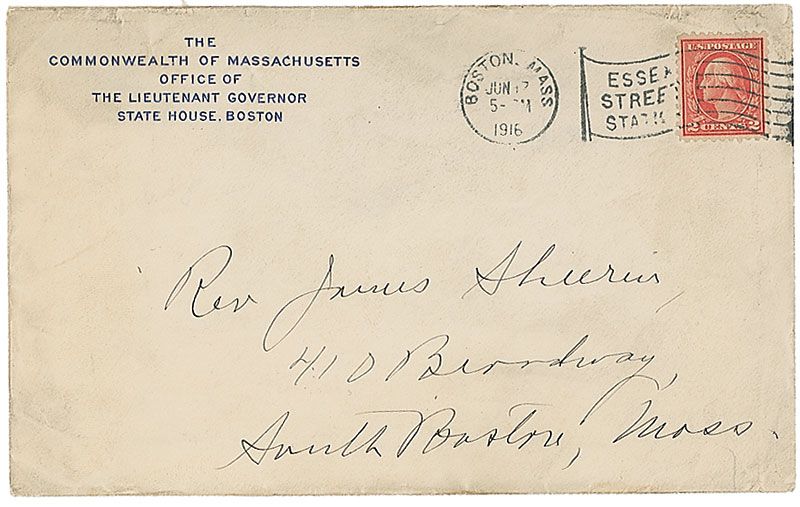 THE
COMMONWEALTH OF MASSACHUSETTS
OFFICE OF
THE LIEUTENANT GOVERNOR
STATE HOUSE, BOSTON
BOSTON, MASS
JUN 17
5- PM
1916
ESSEX
STREET
STAT
U.S. POSTAGE
2 CENTS 2
Rev James Sheerin,
410 Broadway,
South Boston, Mass.